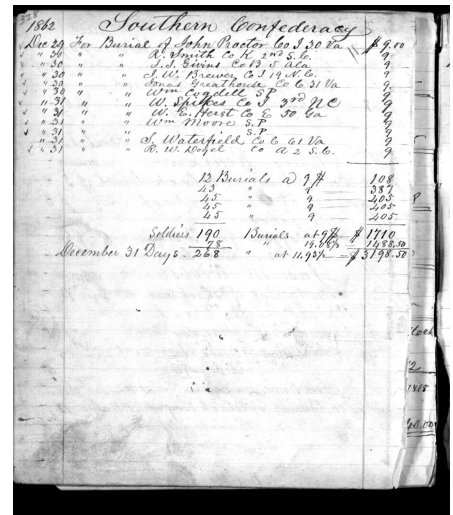 328
1862 Southern Confederacy
Dec 29 For Burial of John Proctor Co I 30 Va $9.00
" 30 " " R. Smith Co K 2nd S.C. 9
" 30 " " J.J. Givins Co B 5 Ala 9
" 30 " " J. W. Brewer Co I 19 N.C. 9
" 30 " " Jonas Greathouse Co C 31 Va 9
" 30 " " Wm Cogdell S.P. 9
" 31 " " W. Spikes Co I 3rd NC 9
" 31 " " W. E. Herst Co E 50 Ga 9
" 31 " " Wm Moore S.P. 9
" 31 " " S.P. 9
" 31 " " S. Waterfield Co C 61 Va 9
" 31 " " R. W. Co A 2 S.C. 9
12 Burials a 9 $ 108
43 " 9 387
45 " 9 405
45 " 9 405
45 " 9 405
Soldiers 190 Burials at 9 $ $ 1710
78 " 1488.50
December 31 Days 268 " at 11.93½ $ 3198.50